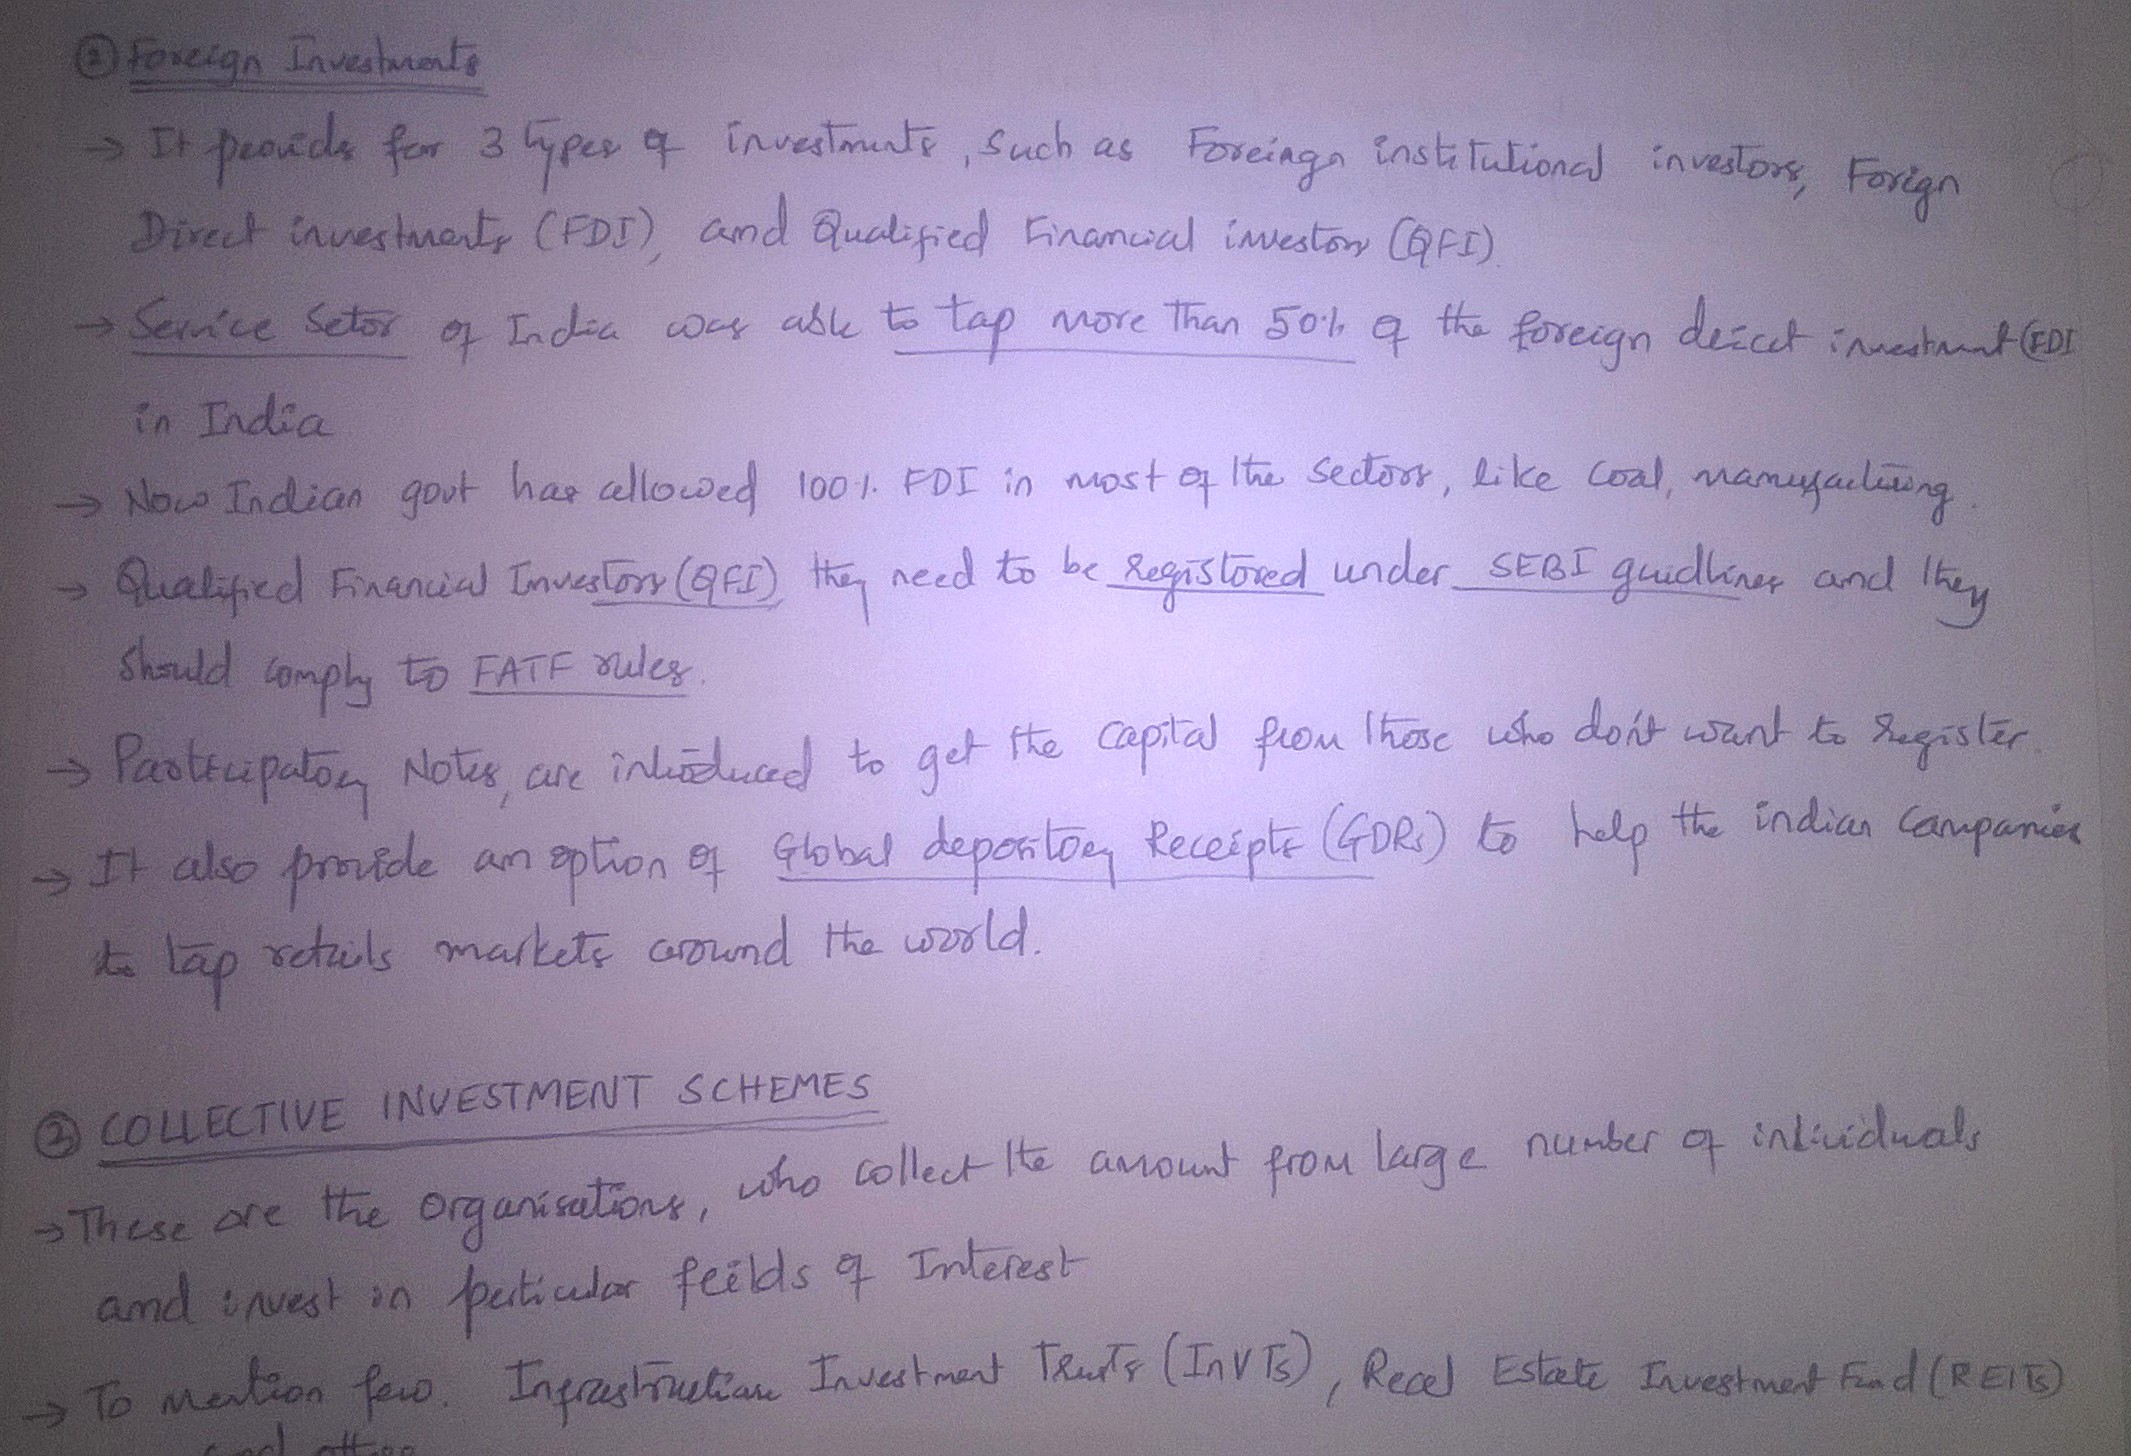 ② Foreign Investments
→ It provids for 3 types of investments, such as Foreingn institutional investors, Forign
Direct investments (FDI), and Qualified Financial investors (QFI).
→ Service Setor of India was able to tap more than 50% of the foreign deicet investment (FDI
in India
→ Now Indian govt has allowed 100%. FDI in most of the sectors, like coal, manufacturing.
→ Qualified Financial Investors (QFI) they need to be Registored under SEBI guidlines and they
should comply to FATF rules.
→ Participatory Notes, are introduced to get the capital from those who don't want to register.
→ It also provide an option of Global depository Receipts (GDRs) to help the indian Companies
to tap retails markets around the world.
③ COLLECTIVE INVESTMENT SCHEMES
→ These are the organisations, who collect the amount from large number of individuals
and invest in perticular feilds of Interest
→ To mention few. Infrastructure Investment Trusts (InVTs), Real Estate Investment Fund (REITs)
and